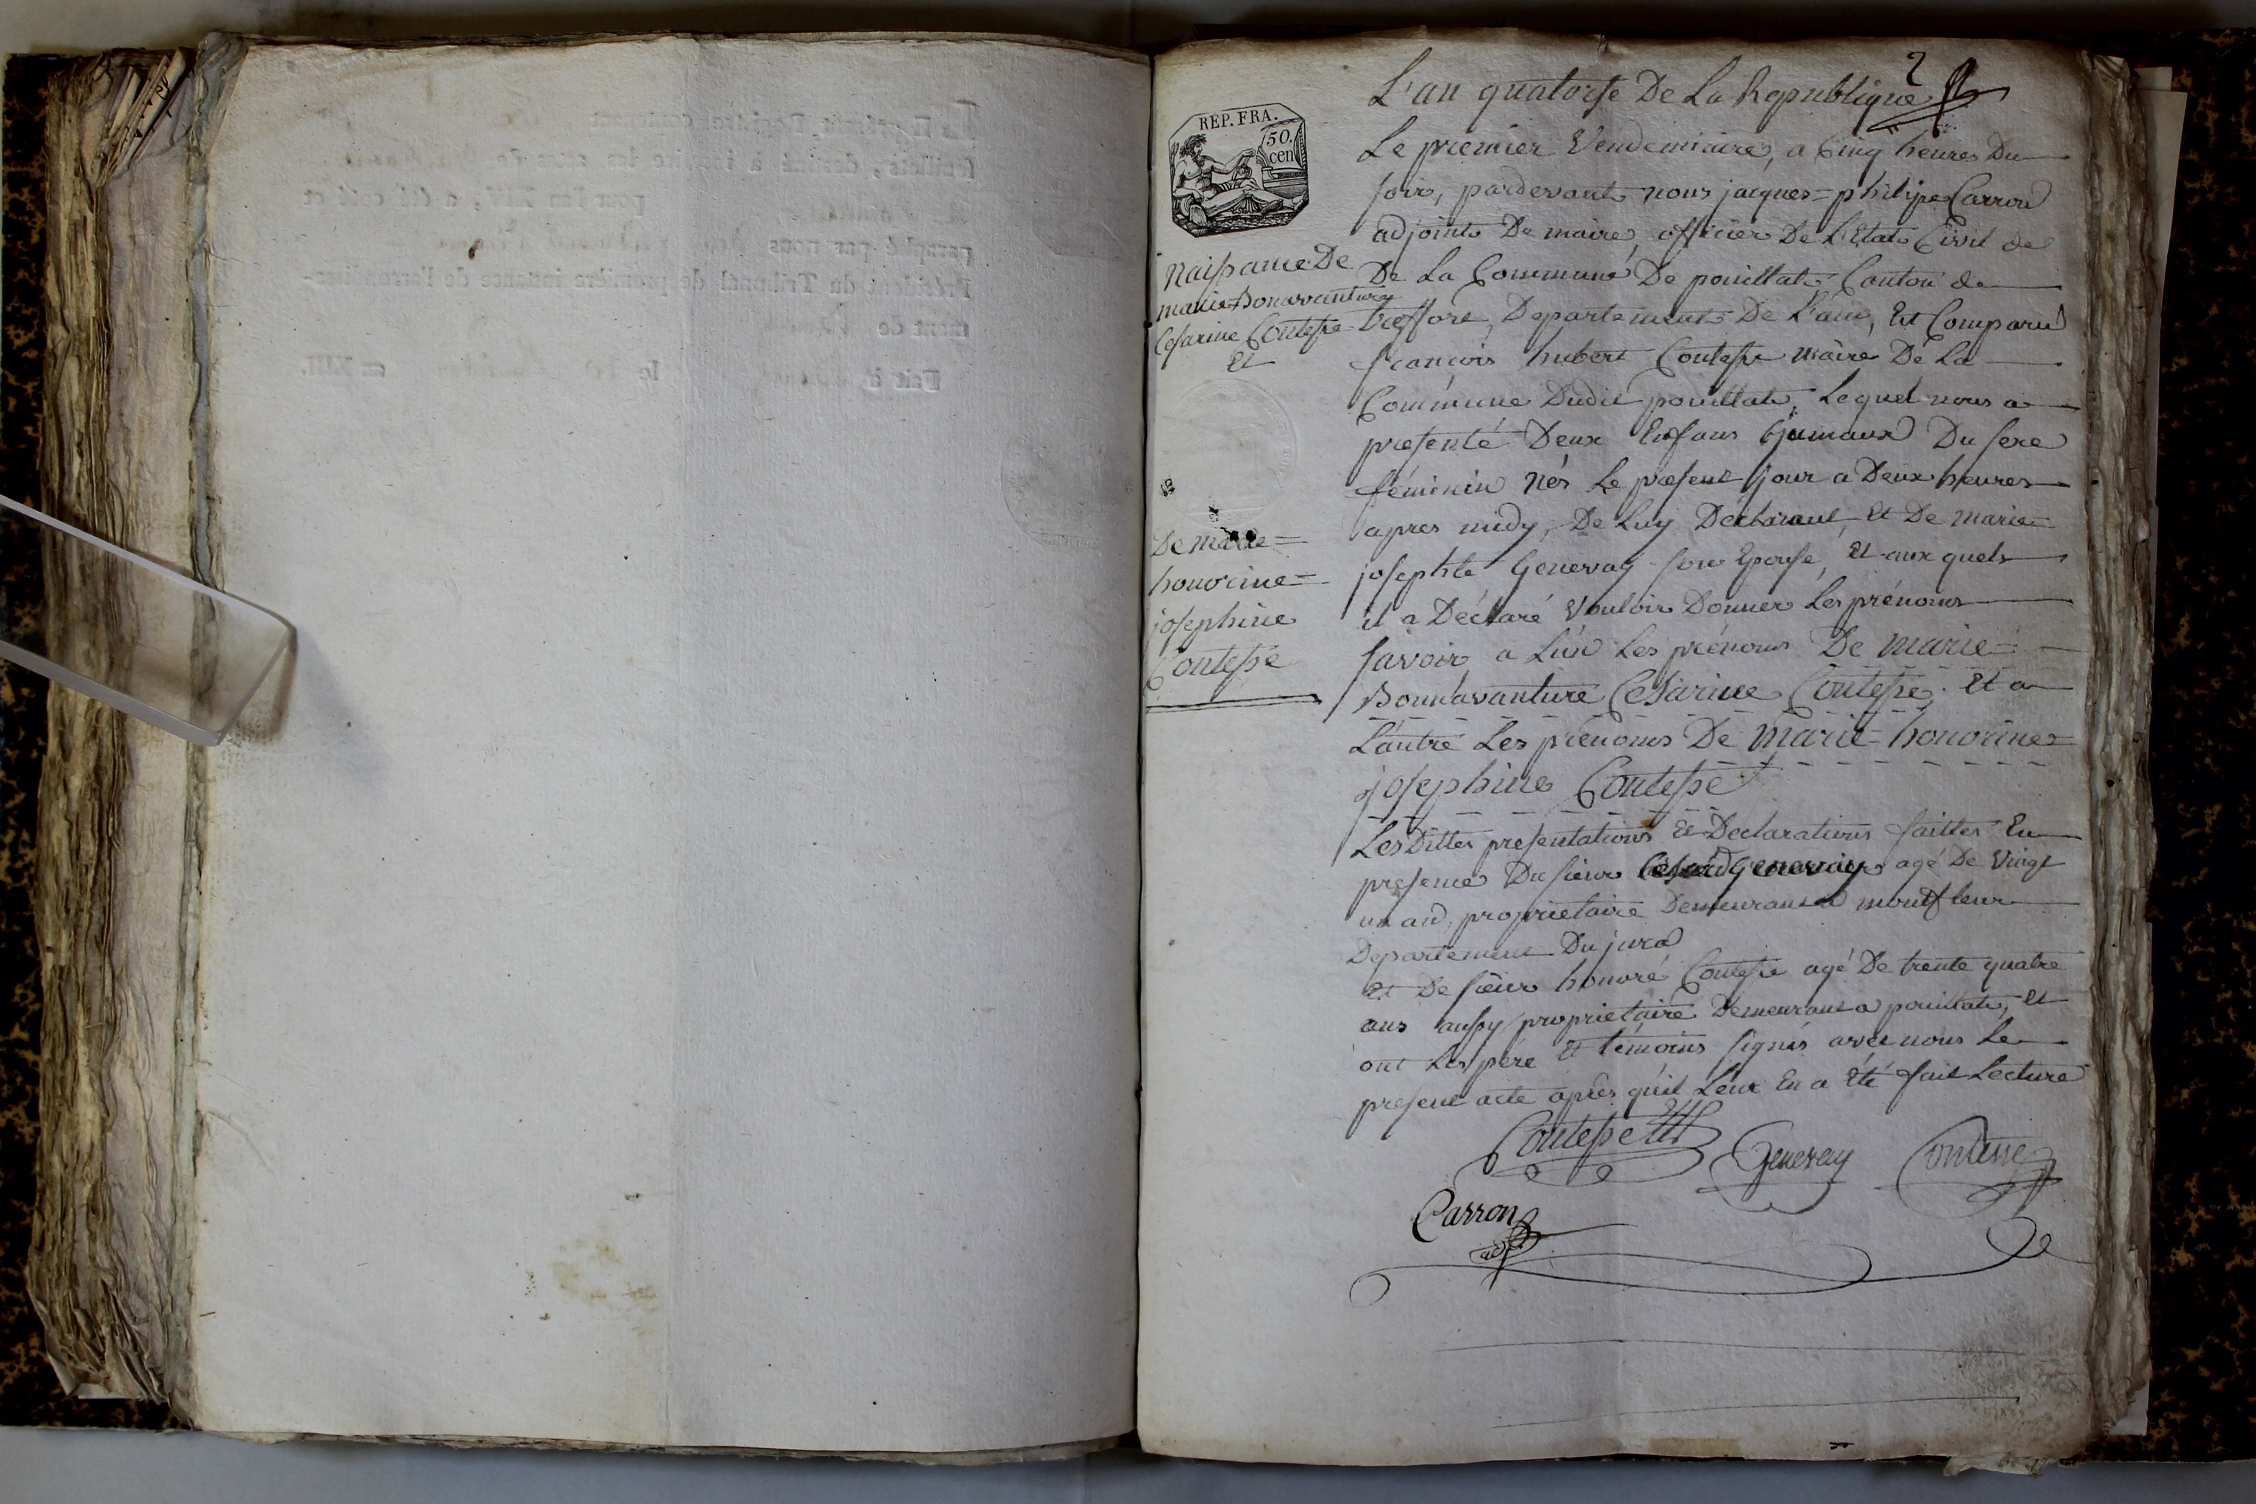 2
REP. FRA.
50.
cen
L'an quatorse De La Republique
Naissance De
marie Bonavanture
Cesarine Contesse
Et
De marie =
honorine =
josephine
Contesse
Le premier Vendemiaire, a Cinq heures Du
soir, pardevant nous jacques = philipe Carron
adjoint De maire, officier De L'Etat Civil de
De La Commune De pouillat Canton de
treffort, Departement De L'ain, Est Comparu
francois hubert Contesse maire De La
Commune Dudit pouillat, Lequel nous a
presenté Deux Enfans Gjumaux Du sexe
féminin Nés Le present jour a Deux heures
apres midy, De Luy Déclarant, Et De marie
josephte Genevay son Epouse, Et aux quels
il a Déclaré Vouloir Donner Les prénoms
savoir a L'un Les prénoms De marie =
Bonnavanture Cesarine Contesse. Et a
L'autre Les prénoms De Marie = honorine =
josephine Contesse
Les Dittes presentations Et Declarations faittes En
presence Du sieur Genevay agé De Vingt
un an, proprietaire Demeurant a montfleur
Departement Du jura
Et De sieur honoré Contesse agé De trente quatre
ans aussy proprietaire Demeurant a pouillat, Et
ont Les père Et témoins signés avec nous Le
present acte après qu'il Leur En a Eté fait Lecture
Contesse Genevay Contesse
Carron
adj